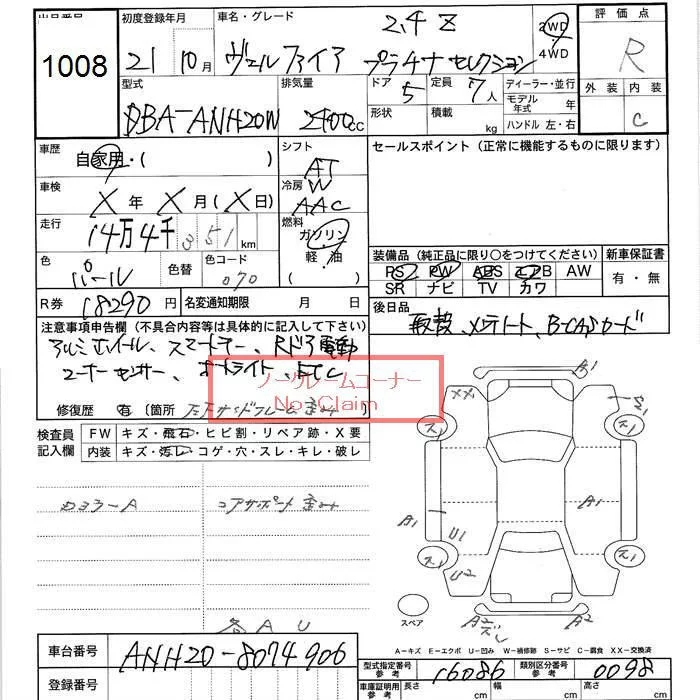 出品番号
1008
初度登録年月
21年 10月
車名・グレード
ヴェルファイア 2.4Z
プラチナセレクション
2WD
4WD
評価点
R
外装 内装
C
型式
DBA-ANH20W
排気量
2400cc
ドア
5
定員
7人
形状
積載
kg
ディーラー・並行
モデル年式 年
ハンドル 左・右
車歴
自家用・( )
シフト
AT
車検
X年 X月(X日)
冷房
W
AAC
走行
14万4千351km
燃料
ガソリン
軽・油
( )
色
パール
色替
色コード
070
R券
18290円
名変通知期限 月 日
セールスポイント(正常に機能するものに限ります)
装備品(純正品に限り○をつけてください)
PS PW ABS エアB AW
SR ナビ TV カワ
新車保証書
有・無
後日品
取散、メンテノート、B-CASカード
注意事項申告欄(不具合内容等は具体的に記入して下さい)
アルミホイール、スマートキー、Rドア電動
コーナーセンサー、オートライト、ETC
ノークレームコーナー
No-Claim
修復歴 有 (箇所
検査員記入欄
FW キズ・飛石・ヒビ割・リペア跡・X要
内装 キズ・汚レ・コゲ・穴・スレ・キレ・破レ
コアサポート歪み
各AU
A1
XX
A1
U1
U2
A1
A2
スペア
A-キズ E-エクボ U-凹み W-補修跡 S-サビ C-腐食 XX-交換済
車台番号
ANH20-8074906
登録番号
型式指定番号
参考
16086
類別区分番号
参考
0098
車庫証明用
参考
長さ cm
幅 cm
高さ cm